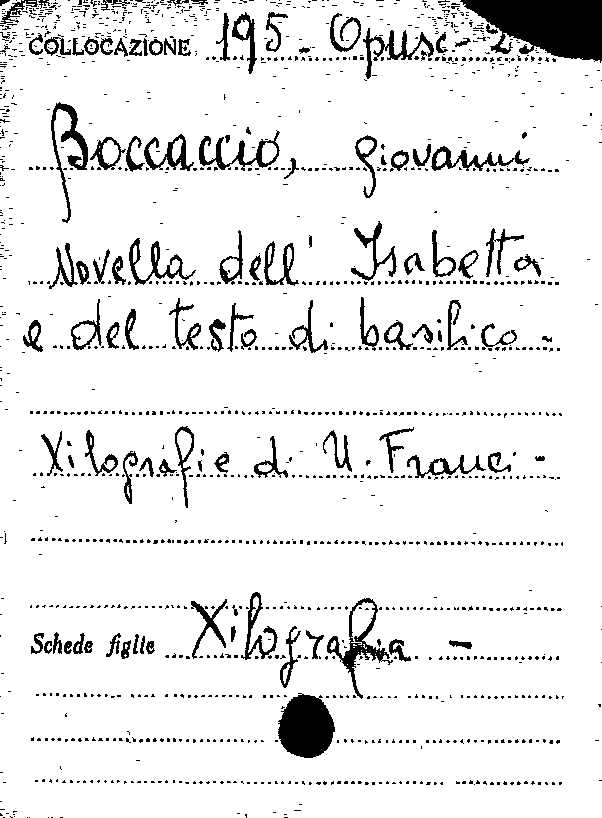 COLLOCAZIONE 195 - Opusc - 
Boccaccio, Giovanni
Novella dell' Isabetta
e del testo di basilico -
Xilografie di U. Franci -
Schede figlie Xilografia -